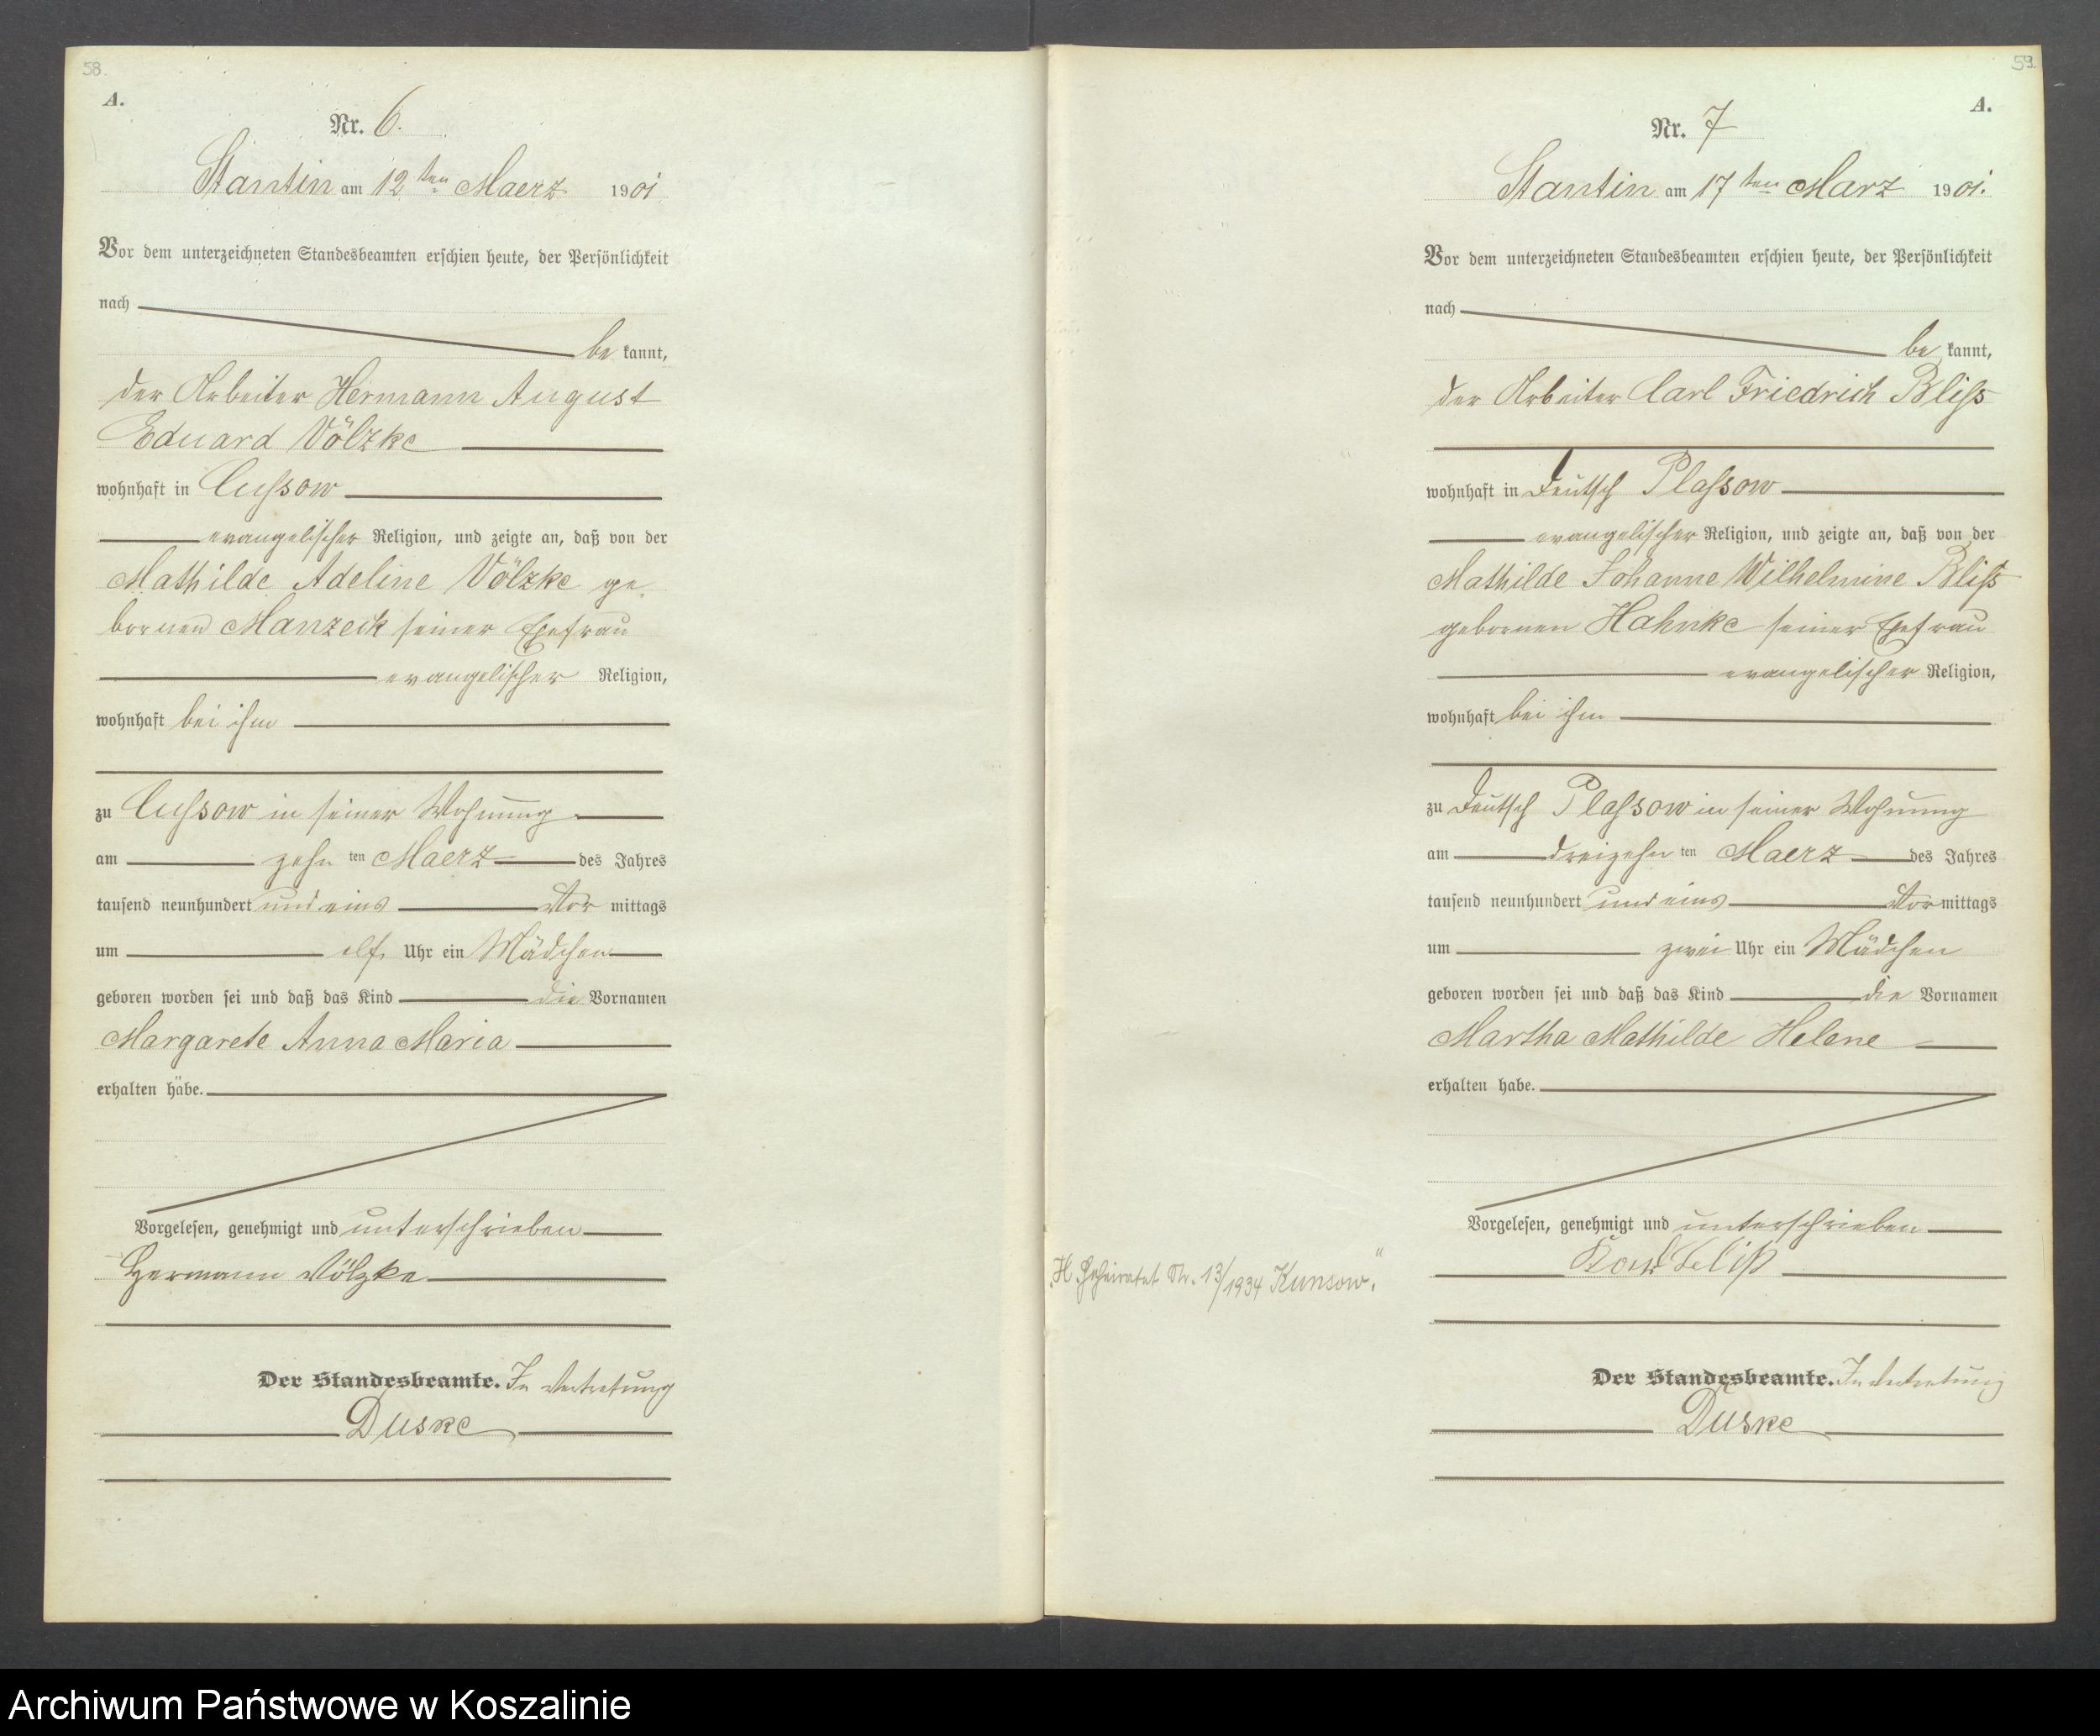 58.
A.
Nr. 6.
Stantin am 12ten Maerz 1901
Vor dem unterzeichneten Standesbeamten erschien heute, der Persönlichkeit
nach
be kannt,
der Arbeiter Hermann August
Eduard Völzke
wohnhaft in Cussow
evangelischer Religion, und zeigte an, daß von der
Mathilde Adeline Völzke ge
bornen Manzeck seiner Ehefrau
evangelischer Religion,
wohnhaft bei ihm
zu Cussow in seiner Wohnung
am zehn ten Maerz des Jahres
tausend neunhundert und eins Vor mittags
um elf Uhr ein Mädchen
geboren worden sei und daß das Kind die Vornamen
Margarete Anna Maria
erhalten habe.
Vorgelesen, genehmigt und unterschrieben
Hermann Völzke
Der Standesbeamte. In Vertretung
Duske
59.
A.
Nr. 7
Stantin am 17ten Marz 1901.
Vor dem unterzeichneten Standesbeamten erschien heute, der Persönlichkeit
nach
be kannt,
der Arbeiter Carl Friedrich Bliss
wohnhaft in Deutsch Plassow
evangelischer Religion, und zeigte an, daß von der
Mathilde Johanne Wilhelmine Bliss
gebornen Hahnke seiner Ehefrau
evangelischer Religion,
wohnhaft bei ihm
zu Deutsch Plassow in seiner Wohnung
am dreizehn ten Maerz des Jahres
tausend neunhundert und eins Vor mittags
um zwei Uhr ein Mädchen
geboren worden sei und daß das Kind die Vornamen
Martha Mathilde Helene
erhalten habe.
Vorgelesen, genehmigt und unterschrieben
Karl Bliß
"H. Geheiratet Nr. 13/1934 Kunsow."
Der Standesbeamte. In Vertretung
Duske
Archiwum Państwowe w Koszalinie